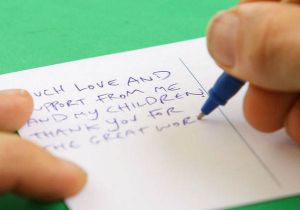 UCH LOVE AND
UPPORT FROM ME
AND MY CHILDREN
THANK YOU FOR
THE GREAT WOR